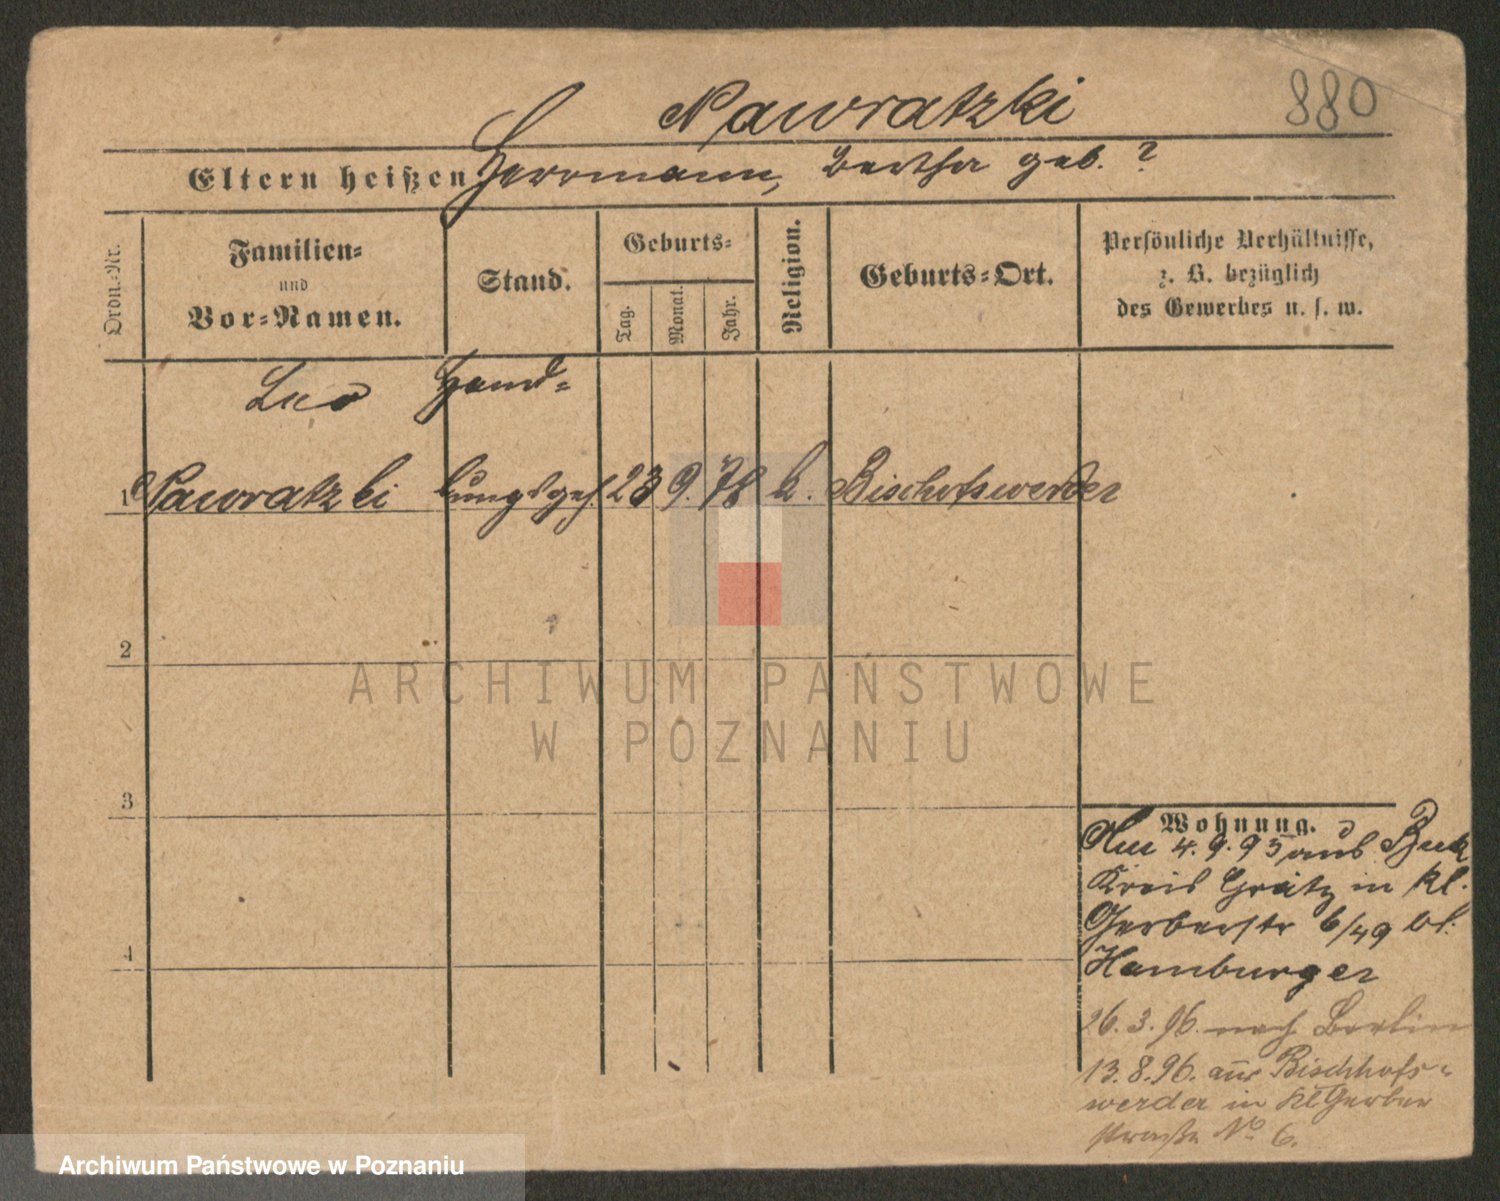 880
Nawratzki
Eltern heißen Herrmann, Bertha geb. ?
Ordn.-Nr.
Familien-
und
Vor-Namen.
Stand.
Geburts-
Tag.
Monat.
Jahr.
Religion.
Geburts-Ort.
Persönliche Verhältnisse,
z. B. bezüglich
des Gewerbes u. s. w.
Leo Hand-
1 Nawratzki lungsgeh. 23 9. 78 Bischofswerder
2
3
4
Wohnung.
4.9.93 aus Buk
Kreis Grätz in Kl.
Gerberstr 6/49 bl.
Hamburger
26.3.96. nach Berlin
13.8.96. aus Bischhofs-
werder in Kl Gerber
straße No 6.
ARCHIWUM PAŃSTWOWE
W POZNANIU
Archiwum Państwowe w Poznaniu